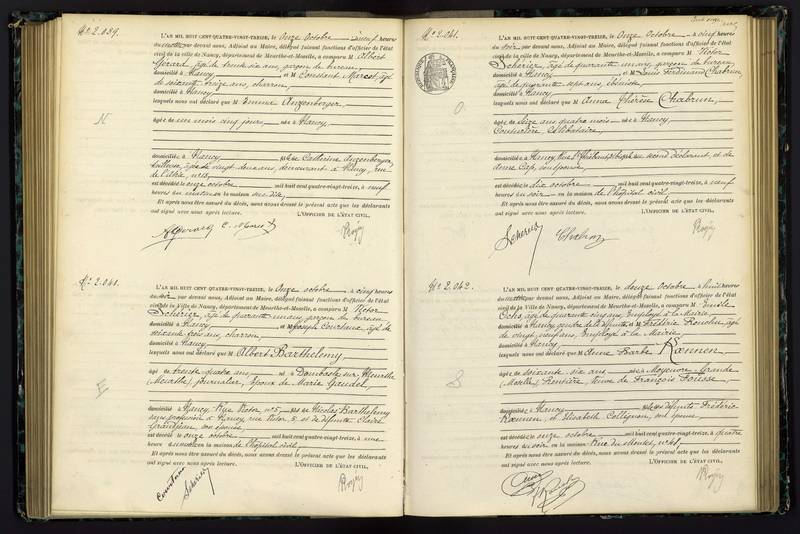 No 2.039.
L'AN MIL HUIT CENT QUATRE-VINGT-TREIZE, le Onze Octobre à neuf heures
du matin par devant nous, Adjoint au Maire, délégué faisant fonctions d'officier de l'état
civil de la ville de Nancy, département de Meurthe-et-Moselle, a comparu M Albert
Gérard, âgé de trente six ans, garçon de bureau,
domicilié à Nancy et M Constant Marcot, âgé
de soixante treize ans, charron,
domicilié à Nancy
lesquels nous ont déclaré que M Emma Anzenberger,
N
âgée de un mois cinq jours, née à Nancy,
domiciliée à Nancy, fille de Catherine Anzenberger,
tailleuse, âgée de vingt deux ans, demeurant à Nancy, rue
est décédée onze octobre mil huit cent quatre-vingt-treize, à neuf
heures du matin en la maison sus dite,
Et après nous être assuré du décès, nous avons dressé le présent acte que les déclarants
ont signé avec nous après lecture. L'OFFICIER DE L'ÉTAT CIVIL,
A. Gérard C. Marcot
No 2.040.
L'AN MIL HUIT CENT QUATRE-VINGT-TREIZE, le Onze octobre à cinq heures
du soir par devant nous, Adjoint au Maire, délégué faisant fonctions d'officier de l'état
civil de la Ville de Nancy, département de Meurthe-et-Moselle, a comparu M Victor
Scherier, âgé de quarante un ans, garçon de bureau
domicilié à Nancy et M Joseph Courtaux, âgé de
soixante trois ans, charron,
domicilié à Nancy
lesquels nous ont déclaré que M Albert Barthelemy
E
âgé de trente quatre ans, né à Dombasle sur Meurthe
(Meurthe) journalier, époux de Marie Gaudel,
domicilié à Nancy, Rue Victor, no 5, fils de Nicolas Barthelemy
sans profession à Nancy, rue Victor, 5 et de défunte Claire
Grandjean, son épouse,
est décédé le onze octobre mil huit cent quatre-vingt-treize, à une
heure du matin en la maison de l'hôpital civil,
Et après nous être assuré du décès, nous avons dressé le présent acte que les déclarants
ont signé avec nous après lecture. L'OFFICIER DE L'ÉTAT CIVIL,
Courtaux Scherier
No 2.041.
L'AN MIL HUIT CENT QUATRE-VINGT-TREIZE, le Onze Octobre à cinq heures
du soir, par devant nous, Adjoint au Maire, délégué faisant fonctions d'officier de l'état
civil de la ville de Nancy, département de Meurthe-et-Moselle, a comparu M Victor
Scherier, âgé de quarante un ans, garçon de bureau,
domicilié à Nancy et M Louis Ferdinand Chabrun
âgé de quarante sept ans, ébéniste,
domicilié à Nancy
lesquels nous ont déclaré que M Anna Thérèse Chabrun,
O.
âgée de seize ans quatre mois née à Nancy,
Couturière, célibataire,
domiciliée à Nancy, fille du second déclarant, et de
son épouse,
est décédée le dix octobre mil huit cent quatre-vingt-treize, à neuf
heures du soir en la maison de l'hôpital civil,
Et après nous être assuré du décès, nous avons dressé le présent acte que les déclarants
ont signé avec nous après lecture. L'OFFICIER DE L'ÉTAT CIVIL,
Scherier Chabrun
No 2.042.
L'AN MIL HUIT CENT QUATRE-VINGT-TREIZE, le douze Octobre à huit heures
du matin par devant nous, Adjoint au Maire, délégué faisant fonctions d'officier de l'état
civil de la Ville de Nancy, département de Meurthe-et-Moselle, a comparu M Emile
âgé de quarante cinq ans, Employé à la Mairie,
domicilié à Nancy gendre de la défunte et M Frédéric âgé
de vingt neuf ans, Employé à la Mairie,
domicilié à Nancy
lesquels nous ont déclaré que M Anne Barbe Kœnnen,
S
âgée de soixante six ans née à Moyeuvre-Grande
(Moselle), Rentière, Veuve de François Fousse,
domiciliée à Nancy fille des défunts Frédéric
Kœnnen, et Elisabeth Collignon, son épouse,
est décédée onze octobre mil huit cent quatre-vingt-treize, à quatre
heures du soir en la maison, Rue du Montet, no 41,
Et après nous être assuré du décès, nous avons dressé le présent acte que les déclarants
ont signé avec nous après lecture. L'OFFICIER DE L'ÉTAT CIVIL,